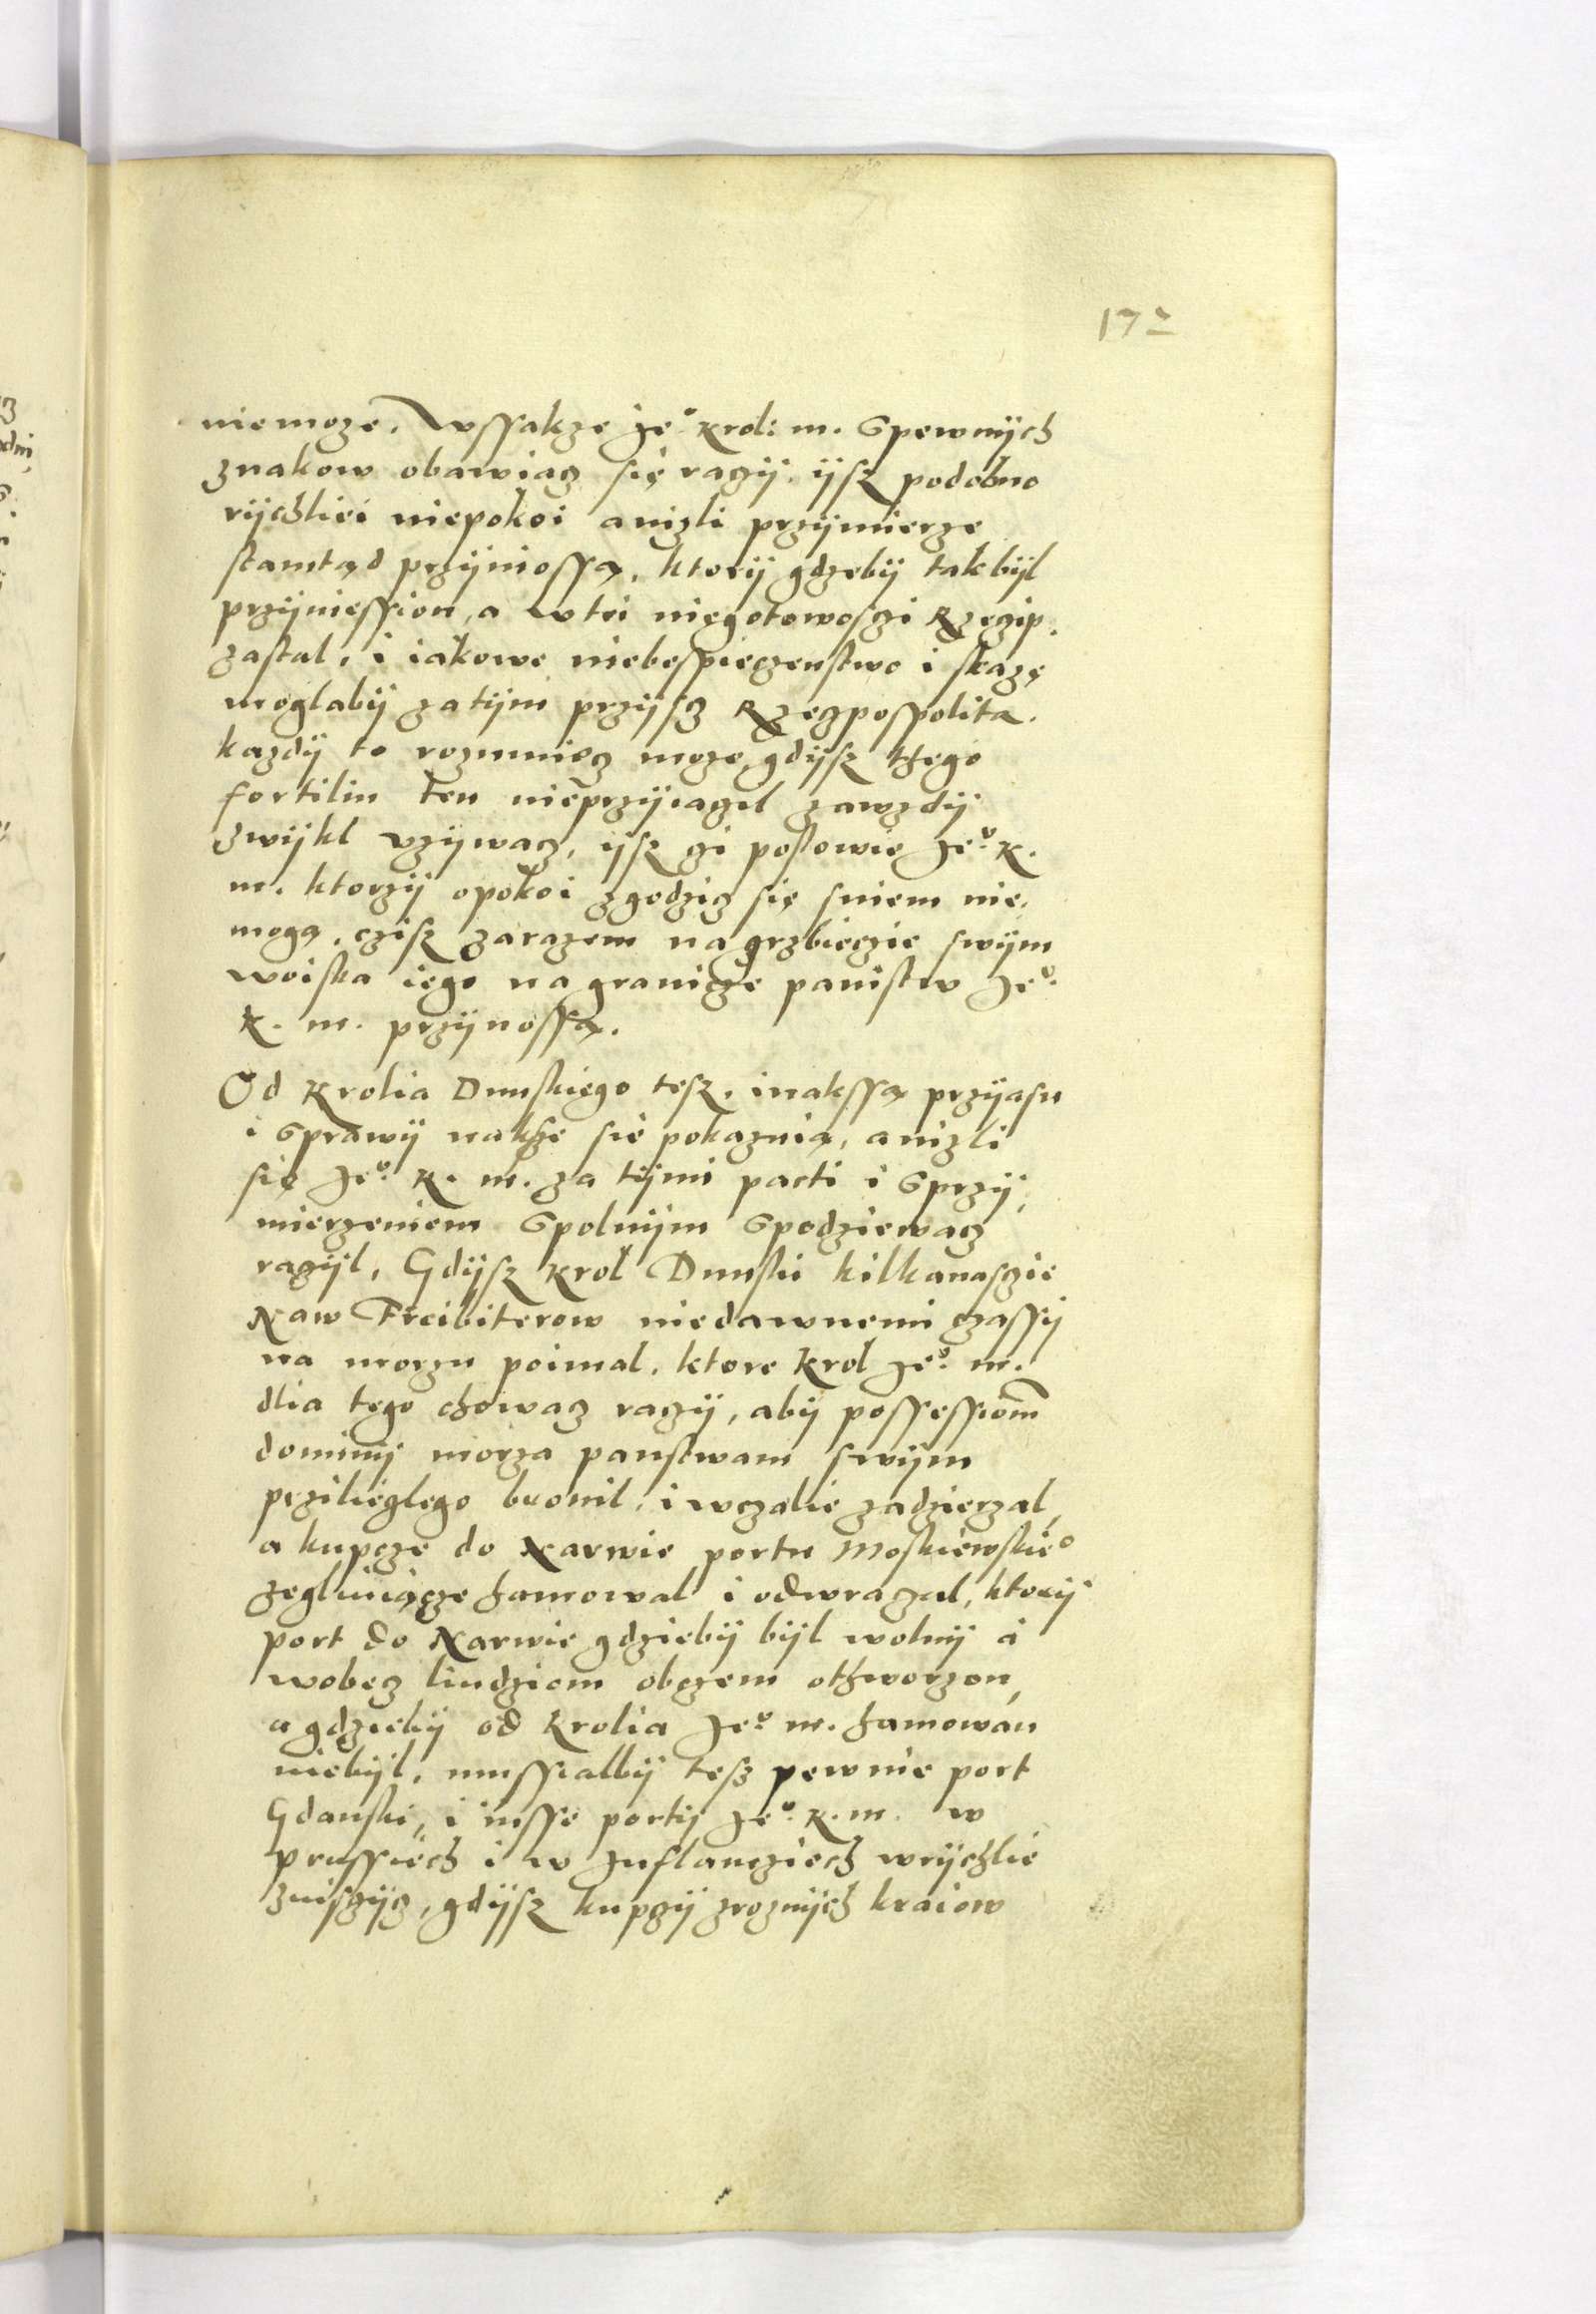 172
niemoze. Wssakze Je° krol: m. spewnÿch
znakow obawiacz się raczÿ, ÿsz podobno
rÿchliei niepokoi anizli przÿmierze
stamtąd przÿniossą, ktorÿ gdzebÿ tak bÿl
przÿniession, a wtei niegotowosczi Rzeczip.
zastal, i iakowe niebespieczenstwo i skazę
moglabÿ zatÿm przÿscz Rzeczpospolita.
kazdÿ to rozumiecz moze, gdÿsz thego
fortilin ten nieprzÿiaczel zawzdÿ
zwÿkl uzÿwacz, ÿsz czi poslowie Je°. K.
m. ktorzÿ opokoi zgodzicz się sniem nie
mogą, czisz zarazem na grzbieczie swÿm
woiska iego na granicze panistw Je°.
K. m. przÿnossą.
Od Krolia Dunskiego tesz, inakssa przÿasn
i sprawÿ nakze sie pokaznią, anizli
się Je°. K. m. za tÿmi pacti i sprzÿ
mierzeniem spolnÿm spodziewacz
raczÿl, Gdÿsz Krol Dunski kilkanasczie
Naw Freibiterow niedawnemi czassÿ
na morzu poimal, ktore Krol Je°. m.
dlia tego chowacz raczÿ, abÿ possessiom
dominÿ morza panstwam swÿm
prziliegłego bronil, i wczalie zadzierzal,
a kupcze do Narwie portu Moskiewskie°
zegluiącze hamowal i odwraczal, ktorÿ
port do Narwie gdziebÿ bÿl wolnÿ a
wobecz liudziom obczem othworzon,
a gdziebÿ od Krolia Je°. m. hamowan
niebÿl, mussialbÿ tesz pewnie port
Gdanski, i insse portÿ Je°. K. m. w
prussiech i w Inflancziech wrÿchlie
znisczÿcz, gdÿsz kupczÿ zroznÿch kraiow